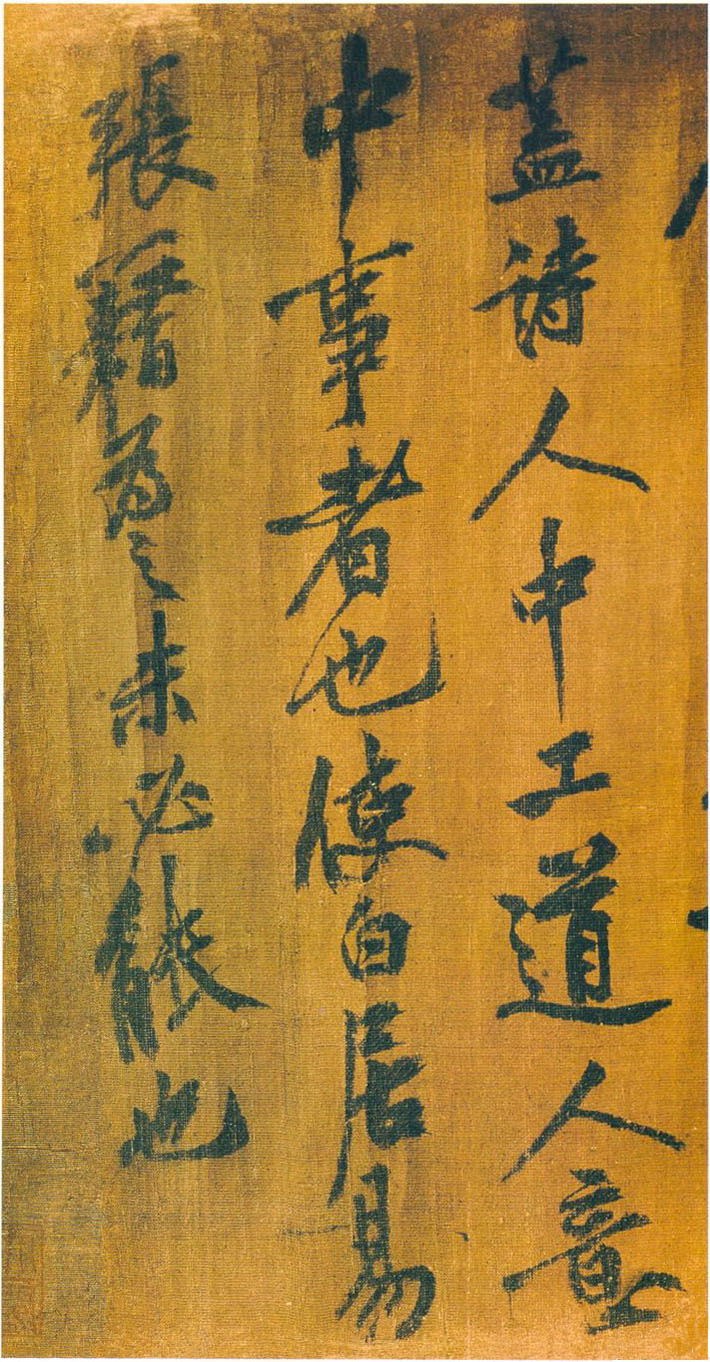 盖诗人中工道人意
中事者也使白居易
張籍為之未必能也